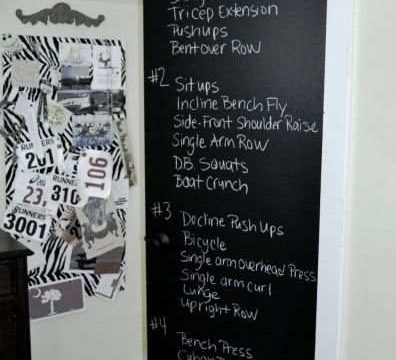 Tricep Extension
Pushups
Bentover Row
#2 Situps
Incline Bench Fly
Side-Front Shoulder Raise
Single Arm Row
DB Squats
Boat Crunch
#3 Decline Push Ups
Bicycle
Single arm overhead Press
Single arm curl
Lunge
Upright Row
#4 Bench Press
201
106
RUNNE
23
310
RUNNERS
3001